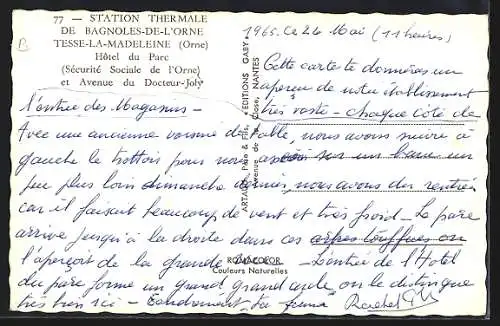 77 — STATION THERMALE
DE BAGNOLES-DE-L'ORNE
TESSE-LA-MADELEINE (Orne)
Hôtel du Parc
(Sécurité Sociale de l'Orne)
et Avenue du Docteur-Joly
B
1965. Ce 24 Mai (11 heures)
Cette carte te donnera un
aperçu de notre établissement
très vaste - chaque côté de
l'entrée des Magasins -
Avec une ancienne voisine de table, nous avons suivi à
gauche le trottoir pour nous assoir sur un banc un
peu plus loin dimanche dernier, nous avons dû rentrer
car il faisait beaucoup de vent et très froid - Le parc
arrive jusqu'à la droite dans ces arbres touffus on
l'aperçoit de la grande - L'entrée de l'Hôtel
du parc forme un grand cercle on le distingue
très bien ici - Tendrement, ta Rachel
ARTAUD, Père & Fils, ÉDITIONS GABY
Avenue de la Close, NANTES
ROMACOLOR
Couleurs Naturelles